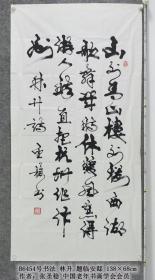 山外青山楼外楼西湖
歌舞几时休暖风熏得
游人醉直把杭州作汴
州 林升诗 圣稳书
B6454号书法_林升_题临安邸_138×68cm
作者：张圣稳_中国老年书画学会会员